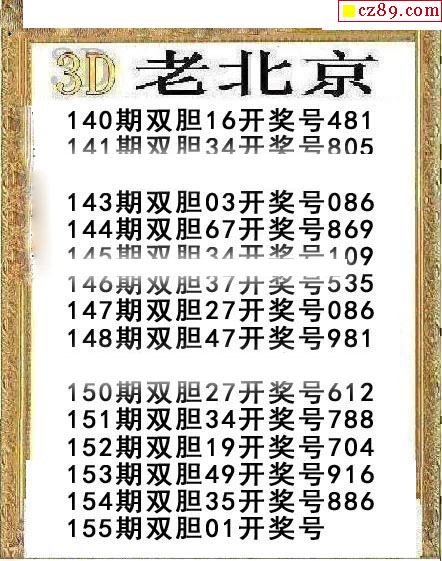 cz89.com
3D 老北京
140期双胆16开奖号481
141期双胆34开奖号805
143期双胆03开奖号086
144期双胆67开奖号869
145期双胆34开奖号109
146期双胆37开奖号535
147期双胆27开奖号086
148期双胆47开奖号981
150期双胆27开奖号612
151期双胆34开奖号788
152期双胆19开奖号704
153期双胆49开奖号916
154期双胆35开奖号886
155期双胆01开奖号